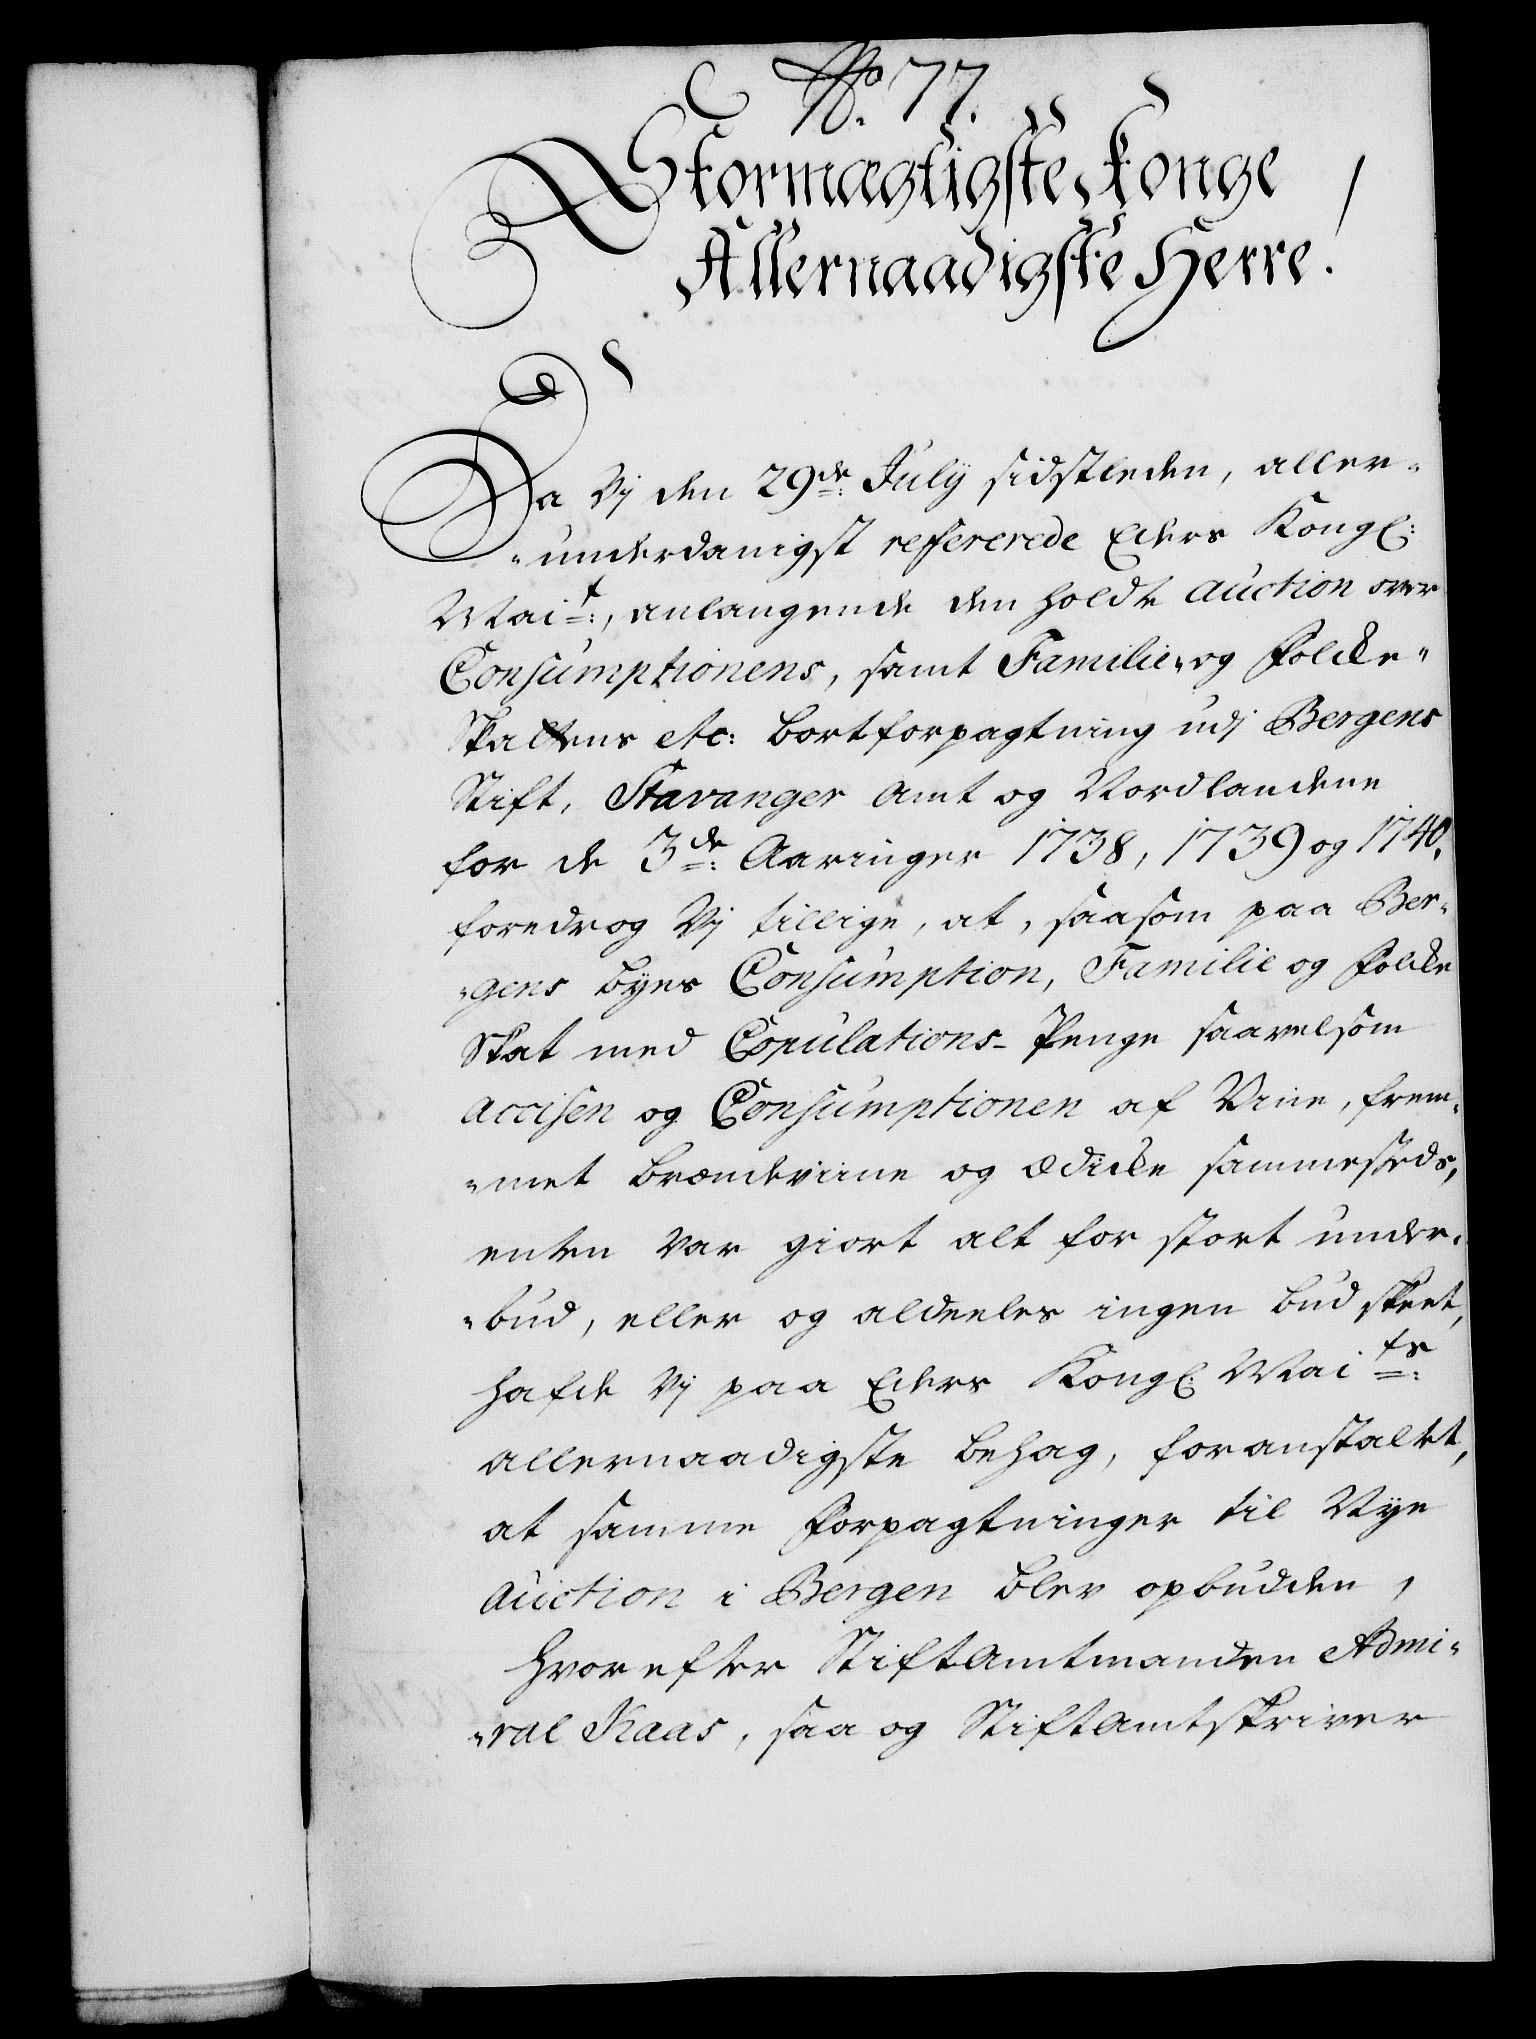 No. 77.
Stormægtigste Konge
Allernaadigste Herre!
Da Vj den 29de: Julÿ sidstleden, aller-
-underdanigst reffererede Eders Kongl:
Mait:, anlangende den holdte Auction over
Consumptionens, samt Familie- og Folcke-
Skattens etc: bortforpagtning udj Bergens
Stift, Stavanger Amt og Nordlandene
for de 3de: Aaringer 1738, 1739 og 1740,
foredrog Vj tillige, at, saasom paa Ber-
-gens Byes Consumption, Familie og Folcke
Skat med Copulations-Penge saavelsom
Accisen og Consumptionen af Viin, frem-
-met Brændeviine og Ædicke sammesteds,
enten var giort alt for stort under-
-bud, eller og aldeeles ingen bud skeet,
hafde Vj paa Eders Kongl: Maits:
allernaadigste behag, foranstaltet,
at samme Forpagtninger til Nye
Auction i Bergen blev opbudden,
hvorefter Stiftamtmanden Admi-
-ral Kaas, saa og Stiftamtskriver